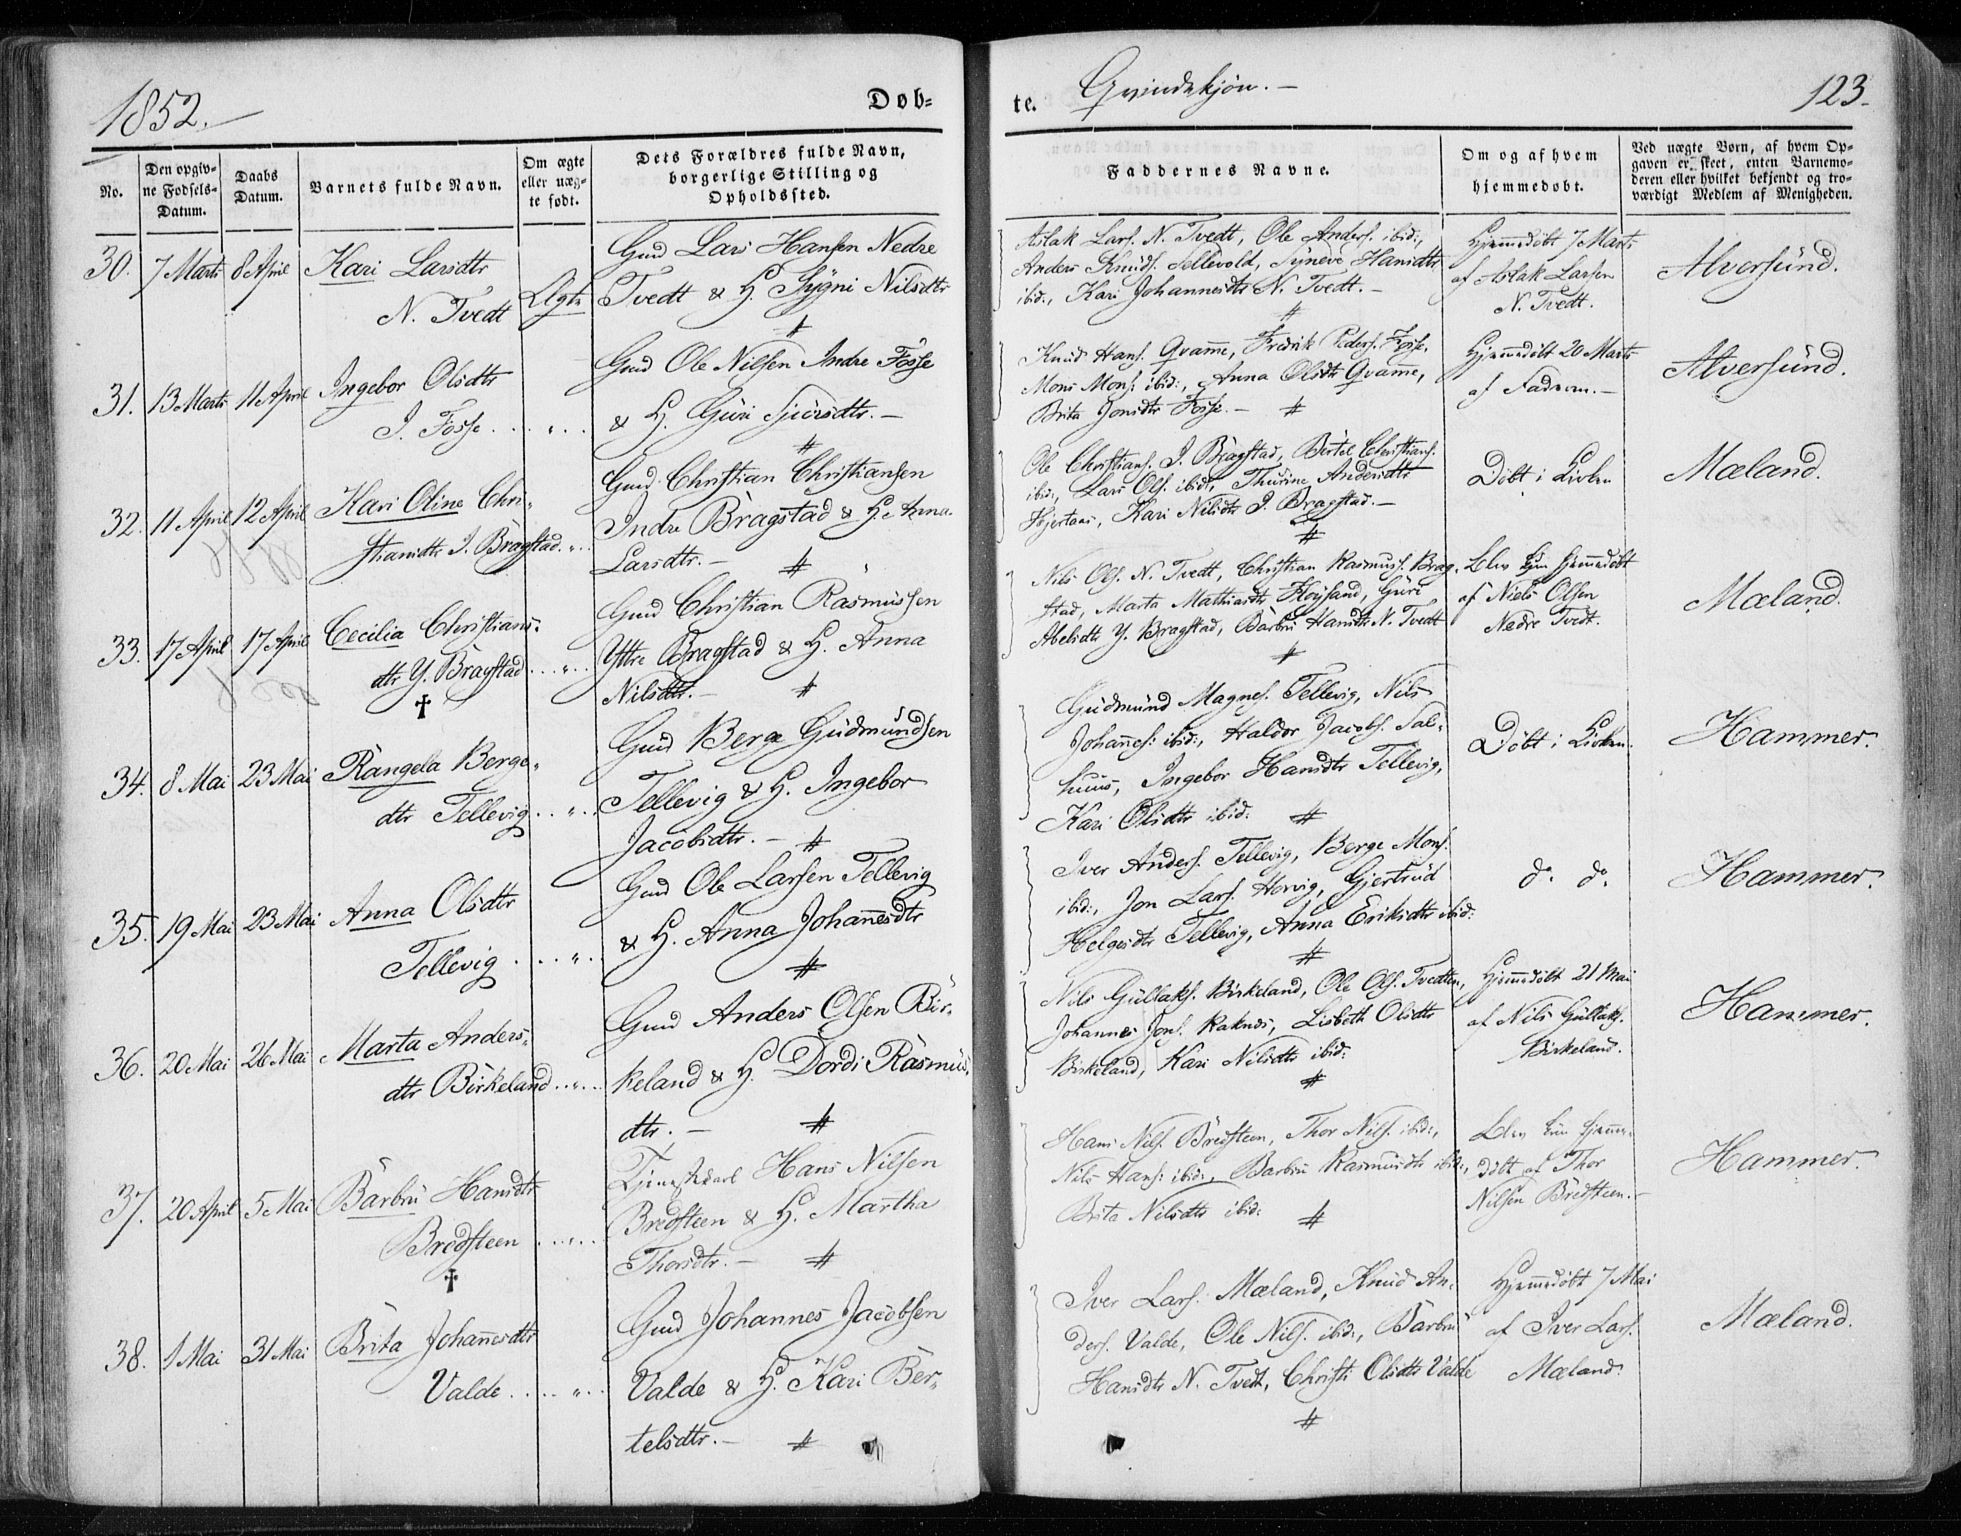 1852.
Døb-
te.
Qvindekjøn.
123.
No.
Den opgiv-
ne Fødsels-
Datum.
Daabs
Datum.
Barnets fulde Navn.
Om ægte
eller uæg-
te født.
Dets Forældres fulde Navn,
borgerlige Stilling og
Opholdssted.
Faddernes Navne.
Om og af hvem
hjemmedøbt.
Ved uægte Børn, af hvem Op-
gaven er skeet, enten Barnemo-
deren eller hvilket bekjendt og tro-
værdigt Medlem af Menigheden.
30. 7 Marts 8 April Kari Larsdtr
N. Tvedt
Ægte
Gmd Lars Hansen Nedre
Tvedt & H. Sygni Nilsdtr
#
Aslak Lars. N. Tvedt, Ole Anders. ibid:,
Anders Knuds. Tellevold, Synève Hansdtr
ibid:, Kari Johannesdtr N. Tvedt. -
#
Hjemmedøbt 7 Marts
af Aslak Larsen
N. Tvedt.
Alversund.
31. 13 Marts 11 April Ingebor Olsdtr
I. Fosse
Gmd Ole Nilsen Indre Fosse
& H. Guri Sjursdtr. -
#
Knud Hans. Qvamme, Fredrik Peders. Fosse,
Mons Mons: ibid:, Anna Olsdtr Qvamme,
Brita Jonsdtr Fosse. - #
Hjemmedøbt 20 Marts
af Faderen. -
Alversund.
32. 11 April 12 April Kari Oline Chri-
stiansdtr I. Bragstad
Gmd Christian Christiansen
Indre Bragstad & H. Anna
Larsdtr. - #
Ole Christians. I. Bragstad, Bertel Christians.
ibid:, Lars Ols. ibid:, Thurine Andersdtr
Hjertaas, Kari Nilsdtr I. Bragstad. -
#
Døbt i Kirken
Mæland.
33. 17 April 17 April Cecilia Christians-
dtr Y. Bragstad
†
Gmd Christian Rasmussen
Yttre Bragstad & H. Anna
Nilsdtr. - #
Nils Ols. N. Tvedt, Christian Rasmuss. Brag-
stad, Marta Mathiasdtr Høysand, Guri
Abelsdtr Y. Bragstad, Barbru Hansdtr N. Tvedt
#
Blev kun hjemmedøbt
af Niels Olsen
Nedre Tvedt.
Mæland.
34. 8 Mai 23 Mai Rangela Berge-
dtr Tellevig
Gmd Berge Gudmundsen
Tellevig & H. Ingebor
Jacobsdtr. - #
Gudmund Magnes. Tellevig, Nils
Johannes: ibid:, Haldor Jacobs. Sal-
huus, Ingebor Hansdtr Tellevig,
Kari Olsdtr ibid: #
Døbt i Kirken.
Hammer.
35. 19 Mai 23 Mai Anna Olsdtr
Tellevig
Gmd Ole Larsen Tellevig
& H. Anna Johannesdtr
#
Iver Anders. Tellevig, Berge Mons.
ibid:, Jon Lars. Hervig, Gjertrud
Helgesdtr Tellevig, Anna Eriksdtr ibid:
#
do. do.
Hammer.
36. 20 Mai 26 Mai Marta Anders-
dtr Birkeland
Gmd Anders Olsen Bir-
keland & H. Dordi Rasmus-
dtr. - #
Nils Gullaks. Birkeland, Ole Ols. Tvedten,
Johannes Jons. Raknæs, Lisbeth Olsdtr
Birkeland, Kari Nilsdtr ibid:
#
Hjemmedøbt 21 Mai
af Nils Gullaks.
Birkeland.
Hammer.
37. 20 April 5 Mai Barbru Hansdtr
Bredsteen
†
Tjenestekarl Hans Nilsen
Bredsteen & H. Martha
Thorsdtr. - #
Hans Nils. Bredsteen, Thor Nils. ibid:,
Nils Hans: ibid:, Barbru Rasmusdtr ibid:,
Brita Nilsdtr ibid: #
Blev kun hjemme-
døbt af Thor
Nilsen Bredsteen. -
Hammer.
38. 1 Mai 31 Mai Brita Johannesdtr
Valde
Gmd Johannes Jacobsen
Valde & H. Kari Ber-
telsdtr. - #
Iver Lars. Mæland, Knud An-
ders. Valde, Ole Nils. ibid:, Barbru
Hansdtr N. Tvedt, Christi Olsdtr Valde
#
Hjemmedøbt 7 Mai
af Iver Lars.
Mæland.
Mæland.